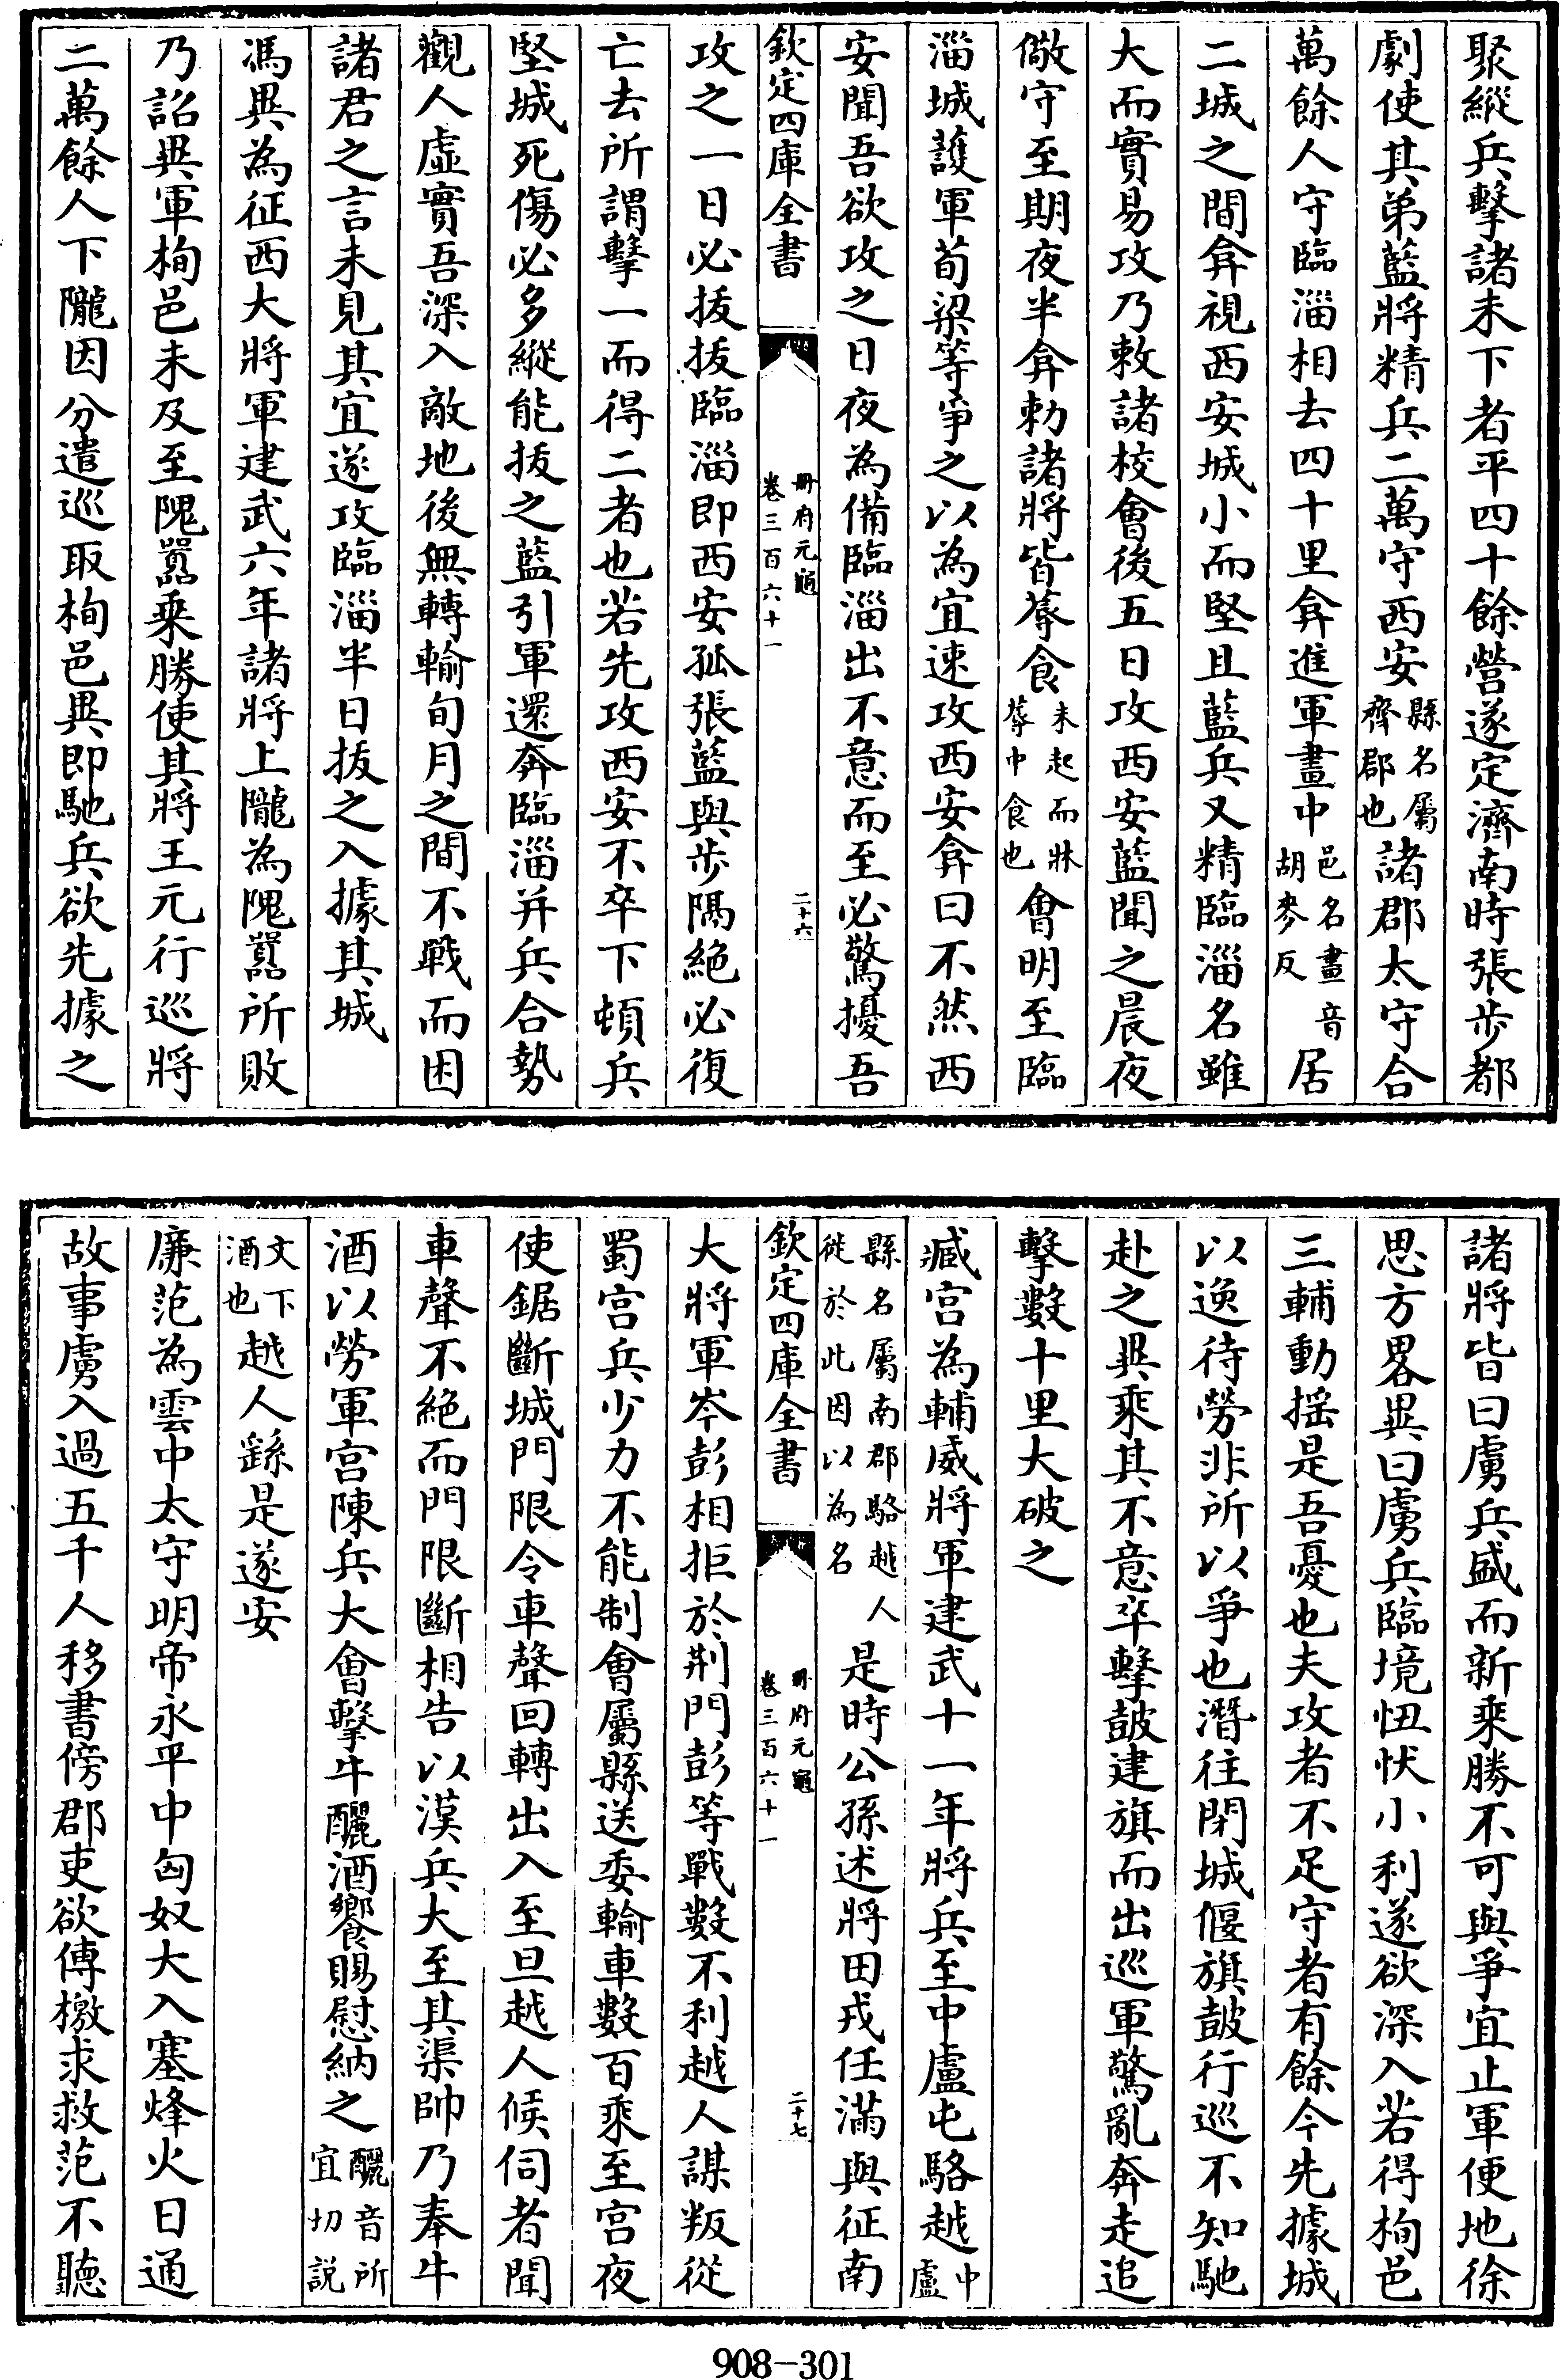 聚縱兵擊諸未下者平四十餘營遂定濟南時張步都
劇使其弟藍將精兵二萬守西安縣名屬齊郡也諸郡太守合
萬餘人守臨淄相去四十里弇進軍畫中邑名畫音胡麥反居
二城之間弇視西安城小而堅且藍兵又精臨淄名雖
大而實易攻乃敕諸校會後五日攻西安藍聞之晨夜
儆守至期夜半弇勅諸將皆蓐食未起而牀蓐中食也會明至臨
淄城護軍荀梁等爭之以為宜速攻西安弇曰不然西
安聞吾欲攻之日夜為備臨淄出不意而至必驚擾吾
欽定四庫全書
冊府元龜
卷三百六十一
二十六
攻之一日必拔拔臨淄即西安孤張藍與步隔絕必復
亡去所謂擊一而得二者也若先攻西安不卒下頓兵
堅城死傷必多縱能拔之藍引軍還奔臨淄并兵合勢
觀人虛實吾深入敵地後無轉輸旬月之間不戰而困
諸君之言未見其宜遂攻臨淄半日拔之入據其城
馮異為征西大將軍建武六年諸將上隴為隗囂所敗
乃詔異軍栒邑未及至隗囂乘勝使其將王元行巡將
二萬餘人下隴因分遣巡取栒邑異即馳兵欲先據之
諸將皆曰虜兵盛而新乘勝不可與爭宜止軍便地徐
思方畧異曰虜兵臨境忸忕小利遂欲深入若得栒邑
三輔動搖是吾憂也夫攻者不足守者有餘今先據城
以逸待勞非所以爭也潛往閉城偃旗鼓行巡不知馳
赴之異乘其不意卒擊鼓建旗而出巡軍驚亂奔走追
擊數十里大破之
臧宮為輔威將軍建武十一年將兵至中盧屯駱越中盧
縣名屬南郡駱越人徙於此因以為名是時公孫述將田戎任滿與征南
欽定四庫全書
冊府元龜
卷三百六十一
二十七
大將軍岑彭相拒於荆門彭等戰數不利越人謀叛從
蜀宮兵少力不能制會屬縣送委輸車數百乘至宮夜
使鋸斷城門限令車聲回轉出入至旦越人候伺者聞
車聲不絕而門限斷相告以漢兵大至其渠帥乃奉牛
酒以勞軍宮陳兵大會擊牛釃酒饗賜慰納之釃音所宜切說
文下酒也越人繇是遂安
廉范為雲中太守明帝永平中匈奴大入塞烽火日通
故事虜入過五千人移書傍郡吏欲傳檄求救范不聽
908-301